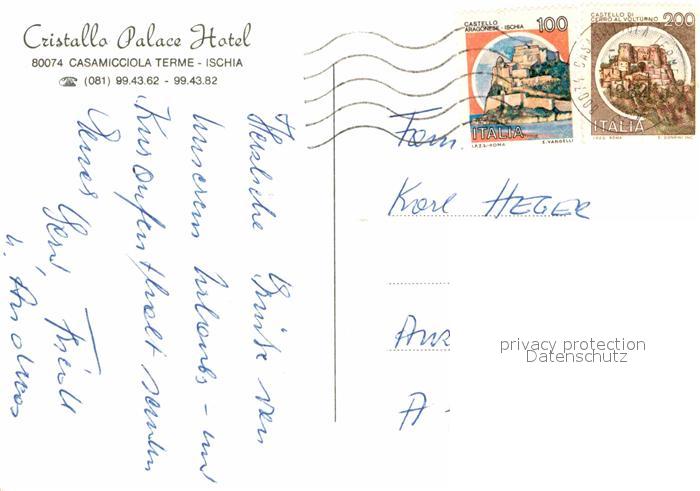 Cristallo Palace Hotel
80074 CASAMICCIOLA TERME - ISCHIA
☎ (081) 99.43.62 - 99.43.82
Herzliche Grüße von
unserem Urlaubs- und
Kuraufenthalt senden
Gerd,
u. Andreas
CASTELLO
ARAGONESE - ISCHIA
100
ITALIA
I.P.Z.S. - ROMA E. VANGELLI
CASTELLO DI
CERRO AL VOLTURNO
200
ITALIA
I.P.Z.S. ROMA E. DONNINI INC.
80074 CASAMICCIOLA
Fam.
Karl HEGER
A
privacy protection
Datenschutz